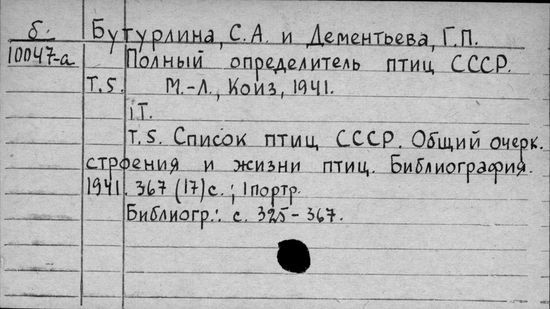 б. Бутурлина, С.А. и Дементьева, Г.П.
10047-а Полный определитель птиц СССР.
Т.5. М.-Л., Коиз, 1941.
1Т.
Т.5. Список птиц СССР. Общий очерк.
строения и жизни птиц. Библиография.
1941. 367 (17) с.; 1 портр.
Библиогр.: с. 325-367.